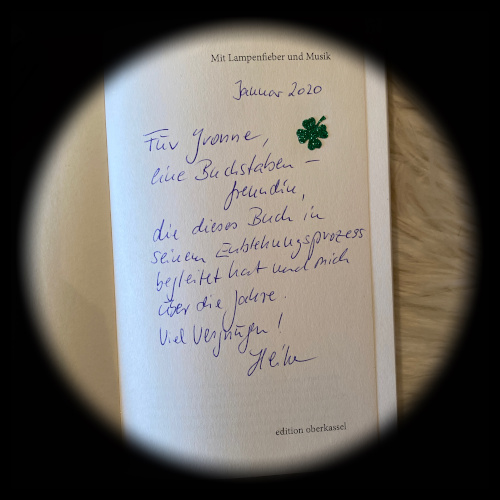 Mit Lampenfieber und Musik
Januar 2020
Für Yvonne,
eine Buchstaben-
freundin,
die dieses Buch in
seinem Entstehungsprozess
begleitet hat und mich
über die Jahre.
Viel Vergnügen!
Heike
edition oberkassel